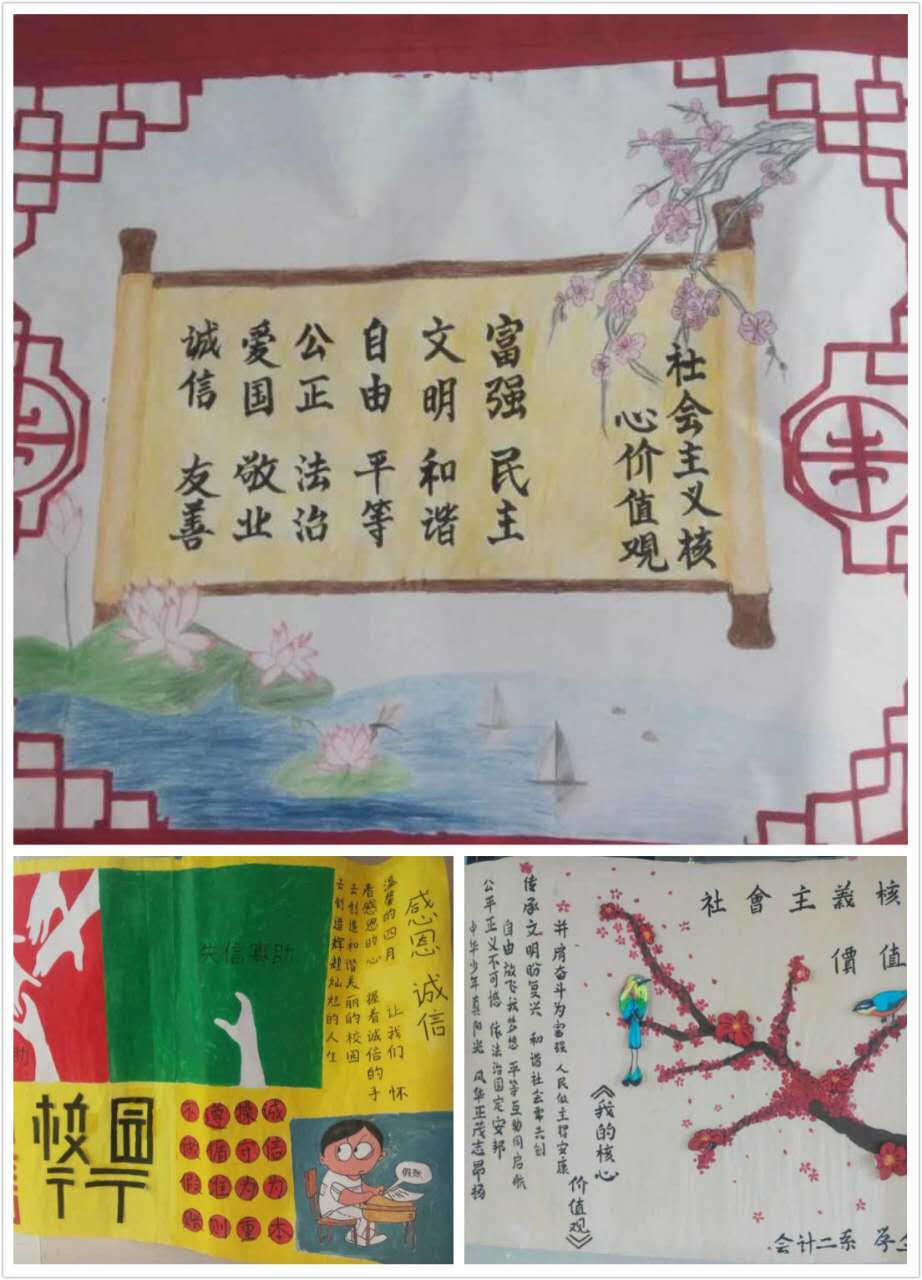 社会主义核
心价值观
富强 民主
文明 和谐
自由 平等
公正 法治
爱国 敬业
诚信 友善
感恩 诚信
温馨的四月 让我们 怀
着感恩的心 握着诚信的手
去创造和谐美丽的校园
去创造辉煌灿烂的人生
失信寡助
助
校园
诚信为本
操守为重
遵循准则
不做假账
社會主義核
價值
《我的核心
价值观》
并肩奋斗为富强 人民做主得安康
传承文明盼复兴 和谐社会常共创
自由放飞我梦想 平等互助同启航
公平正义不可撼 依法治国定安邦
中华少年真阳光 风华正茂志昂扬
会计二系 学